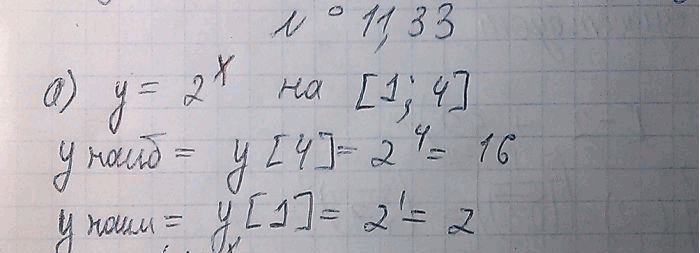 № 11,33
а) y = 2^x на [1; 4]
y наиб = y [4] = 2^4 = 16
y наим = y [1] = 2^1 = 2